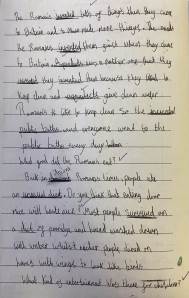 The Romans invented lots of things when they came
to Britain and to make more things. The roads
the Romans invented them just when they came
to Britain Aqueducts was another one that they
invented they invented them because they liked to
keep clean and aqueducts give clean water
Romans to like to keep clean So the
public baths and everyone went to the
public baths every day
What god did the Romans eat?
Back in Roman times, people ate
an Do you think that eating door
mice will taste nice? Most people survived on
a diet of porridge and bread washed down
with water whilst richer people dined on
hares with wings to look like birds
What kind of entertainment Was there for